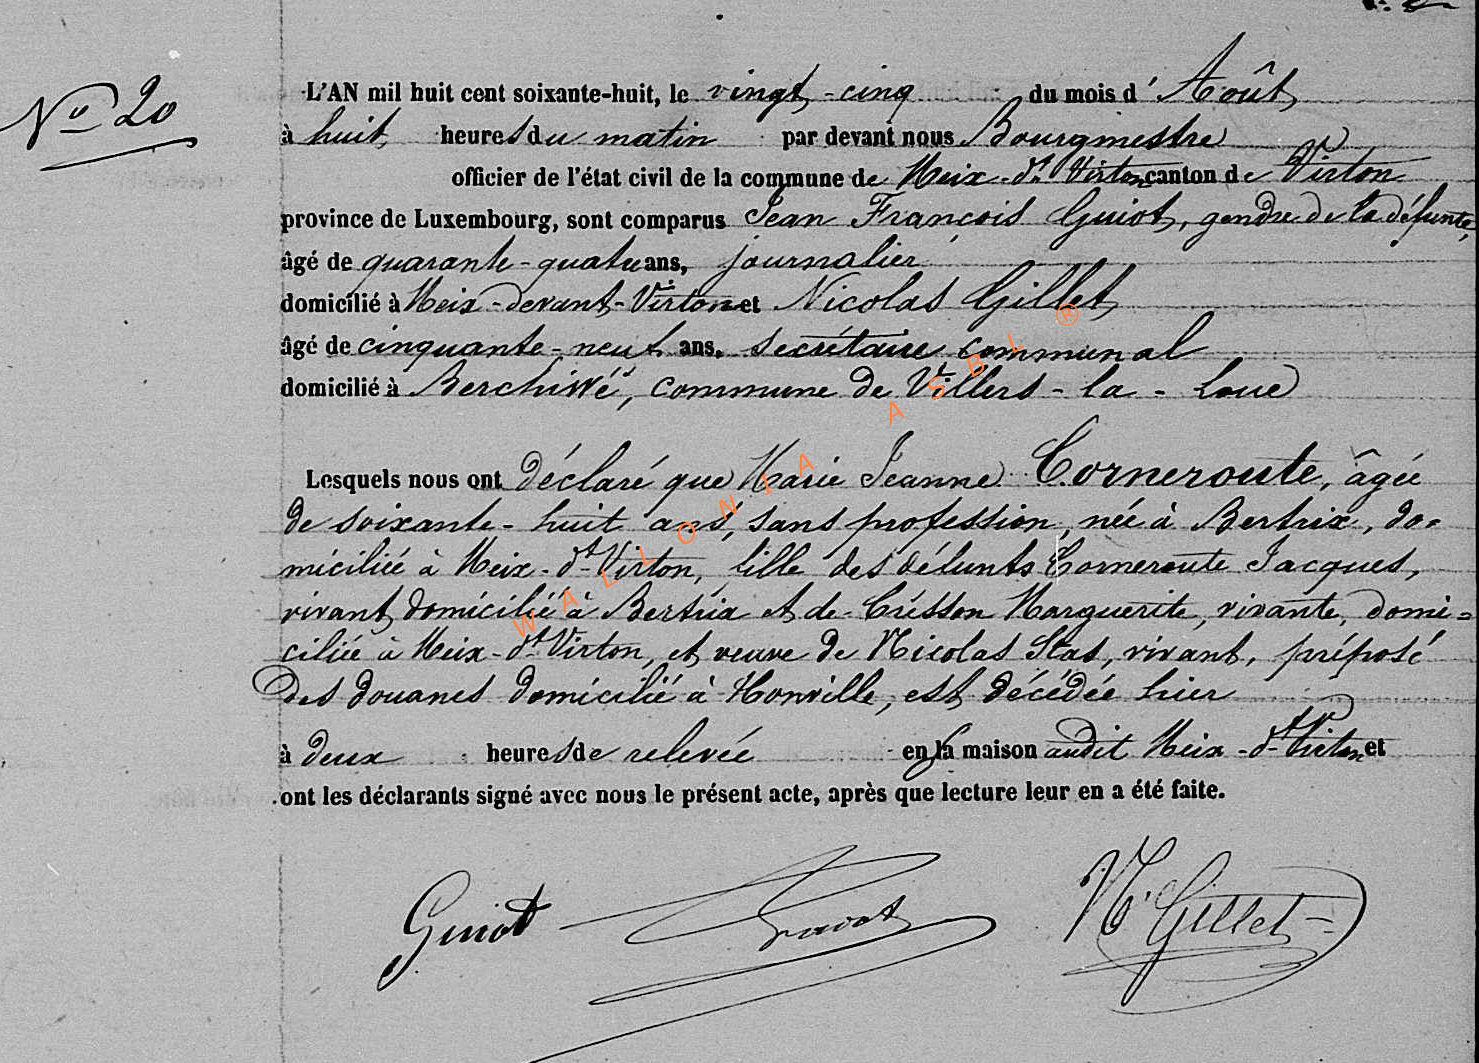 No 20
L'AN mil huit cent soixante-huit, le vingt-cinq du mois d'Août
à huit heures du matin par devant nous Bourgmestre
officier de l'état civil de la commune de Meix-dt Virton canton de Virton
province de Luxembourg, sont comparus Jean François Guiot, gendre de la défunte,
âgé de quarante-quatre ans, journalier
domicilié à Meix-devant-Virton et Nicolas Gillet
âgé de cinquante-neuf ans, secrétaire communal
domicilié à Berchivé, commune de Villers-la-Loue
Lesquels nous ont déclaré que Marie Jeanne Corneroute, âgée
de soixante-huit ans, sans profession, née à Bertrix, do-
miciliée à Meix-dt-Virton, fille des défunts Corneroute Jacques,
vivant domicilié à Bertrix et de Crisson Marguerite, vivante, domi=
ciliée à Meix-dt Virton, et veuve de Nicolas Stas, vivant, préposé
des douanes domicilié à Honville, est décédée hier
à deux heures de relevée en la maison audit Meix-dt-Virton et
ont les déclarants signé avec nous le présent acte, après que lecture leur en a été faite.
Guiot
N. Gillet
WALLONIA ASBL ®